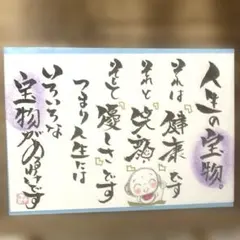 人生の宝物。
それは『健康』です
それと『笑顔』
そして『優しさ』です
つまり人生には
いろいろな
宝物があるはずです